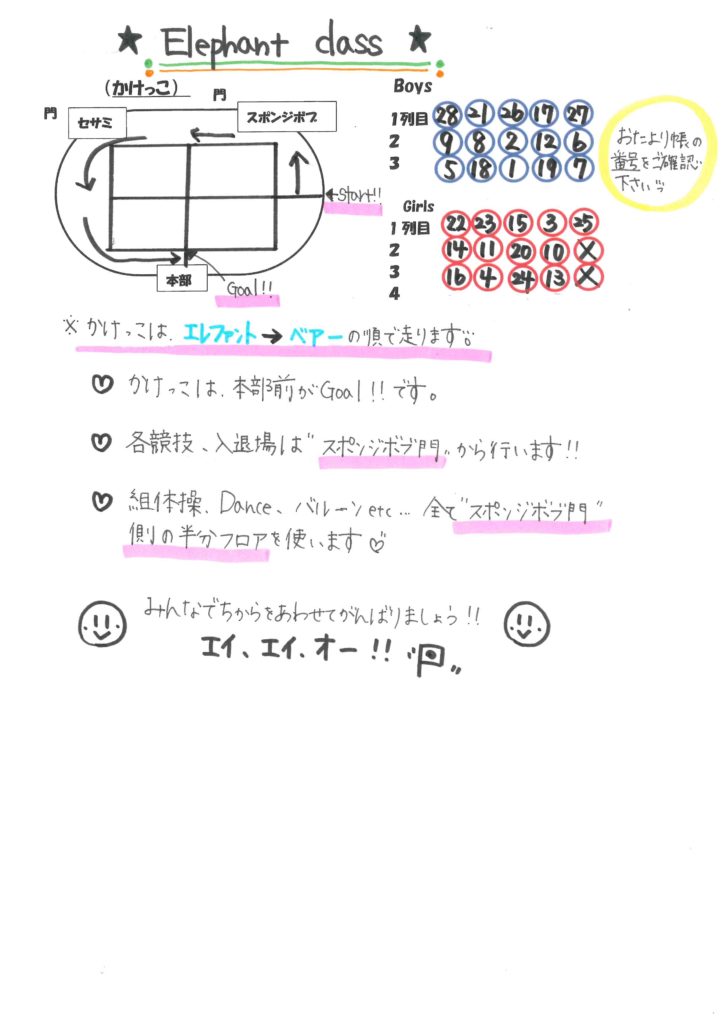 ★ Elephant class ★
(かけっこ)
門
門
セサミ
スポンジボブ
←start!!
本部
Goal!!
Boys
1列目 28 21 26 17 27
2 9 8 2 12 6
3 5 18 1 19 7
おたより帳の
番号をご確認
下さい
Girls
1列目 22 23 15 3 25
2 14 11 20 10 ×
3 16 4 24 13 ×
4
※かけっこは、エレファント→ベアーの順で走ります。
♡ かけっこは、本部前がGoal!!です。
♡ 各競技、入退場は"スポンジボブ門"から行います!!
♡ 組体操、Dance、バルーンetc… 全て"スポンジボブ門"
側の半分フロアを使います♡
みんなでちからをあわせてがんばりましょう!!
エイ、エイ、オー!!